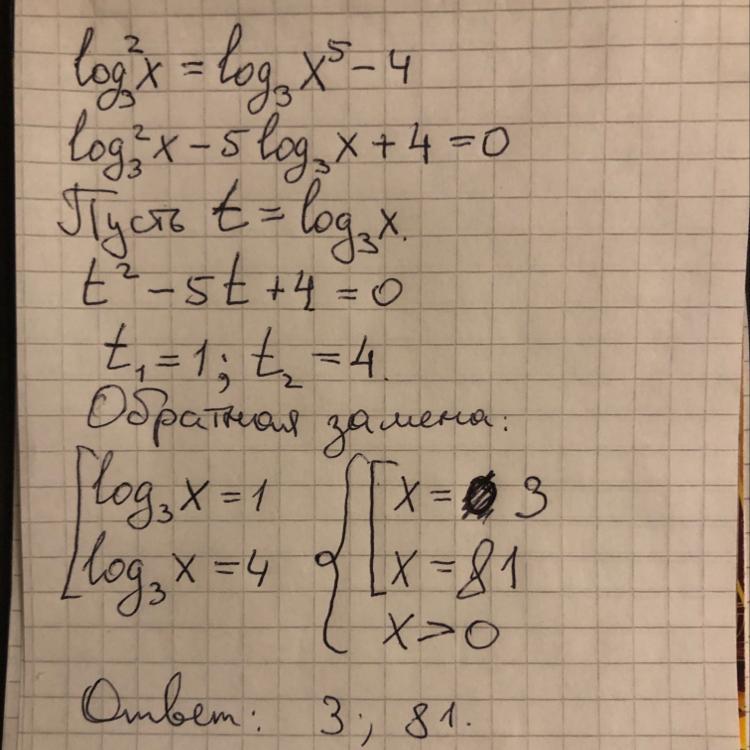 log₃²x = log₃x⁵ - 4
log₃²x - 5log₃x + 4 = 0
Пусть t = log₃x.
t² - 5t + 4 = 0
t₁ = 1; t₂ = 4.
Обратная замена:
[log₃x = 1 {[x = 3
[log₃x = 4 {[x = 81
{x > 0
Ответ: 3; 81.